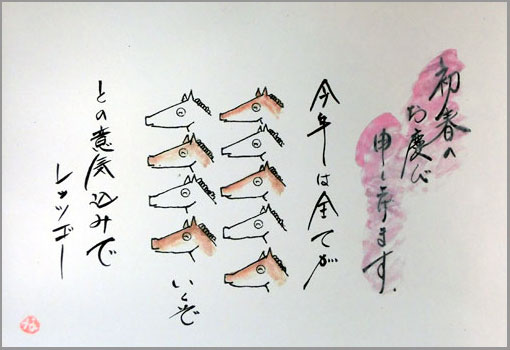 初春の
お慶び
申し上げます。
今年は全てが
いくぞ
との意気込みで
レッツゴー
な